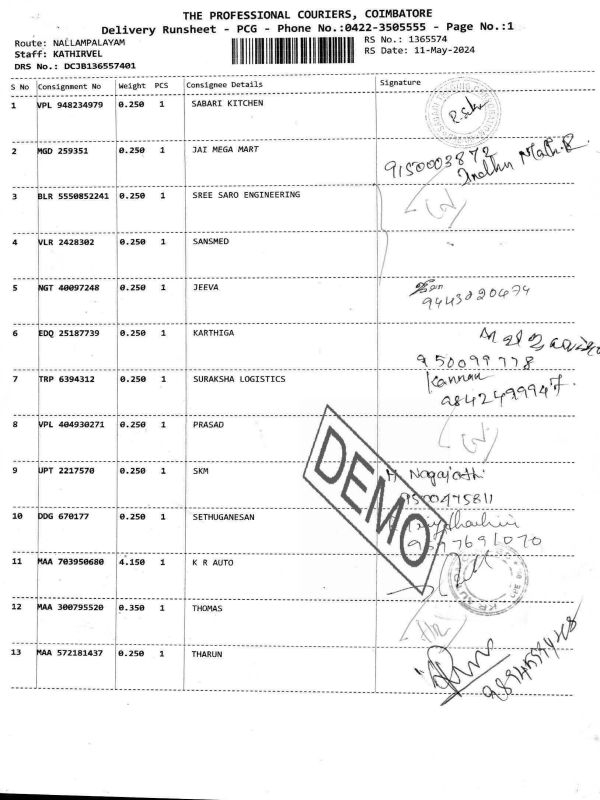 THE PROFESSIONAL COURIERS, COIMBATORE
Delivery Runsheet - PCG - Phone No.:0422-3505555 - Page No.:1
Route: NALLAMPALAYAM RS No.: 1365574
Staff: KATHIRVEL RS Date: 11-May-2024
DRS No.: DCJB136557401
S No Consignment No Weight PCS Consignee Details Signature
1 VPL 948234979 0.250 1 SABARI KITCHEN
2 MGD 259351 0.250 1 JAI MEGA MART 9150003872
3 BLR 5550852241 0.250 1 SREE SARO ENGINEERING
4 VLR 2428302 0.250 1 SANSMED
5 NGT 40097248 0.250 1 JEEVA
6 EDQ 25187739 0.250 1 KARTHIGA
7 TRP 6394312 0.250 1 SURAKSHA LOGISTICS Kannan
8 VPL 404930271 0.250 1 PRASAD
9 UPT 2217570 0.250 1 SKM Nagajothi
9500475811
10 DDG 670177 0.250 1 SETHUGANESAN
11 MAA 703950680 4.150 1 K R AUTO
12 MAA 300795520 0.350 1 THOMAS
13 MAA 572181437 0.250 1 THARUN
DEMO